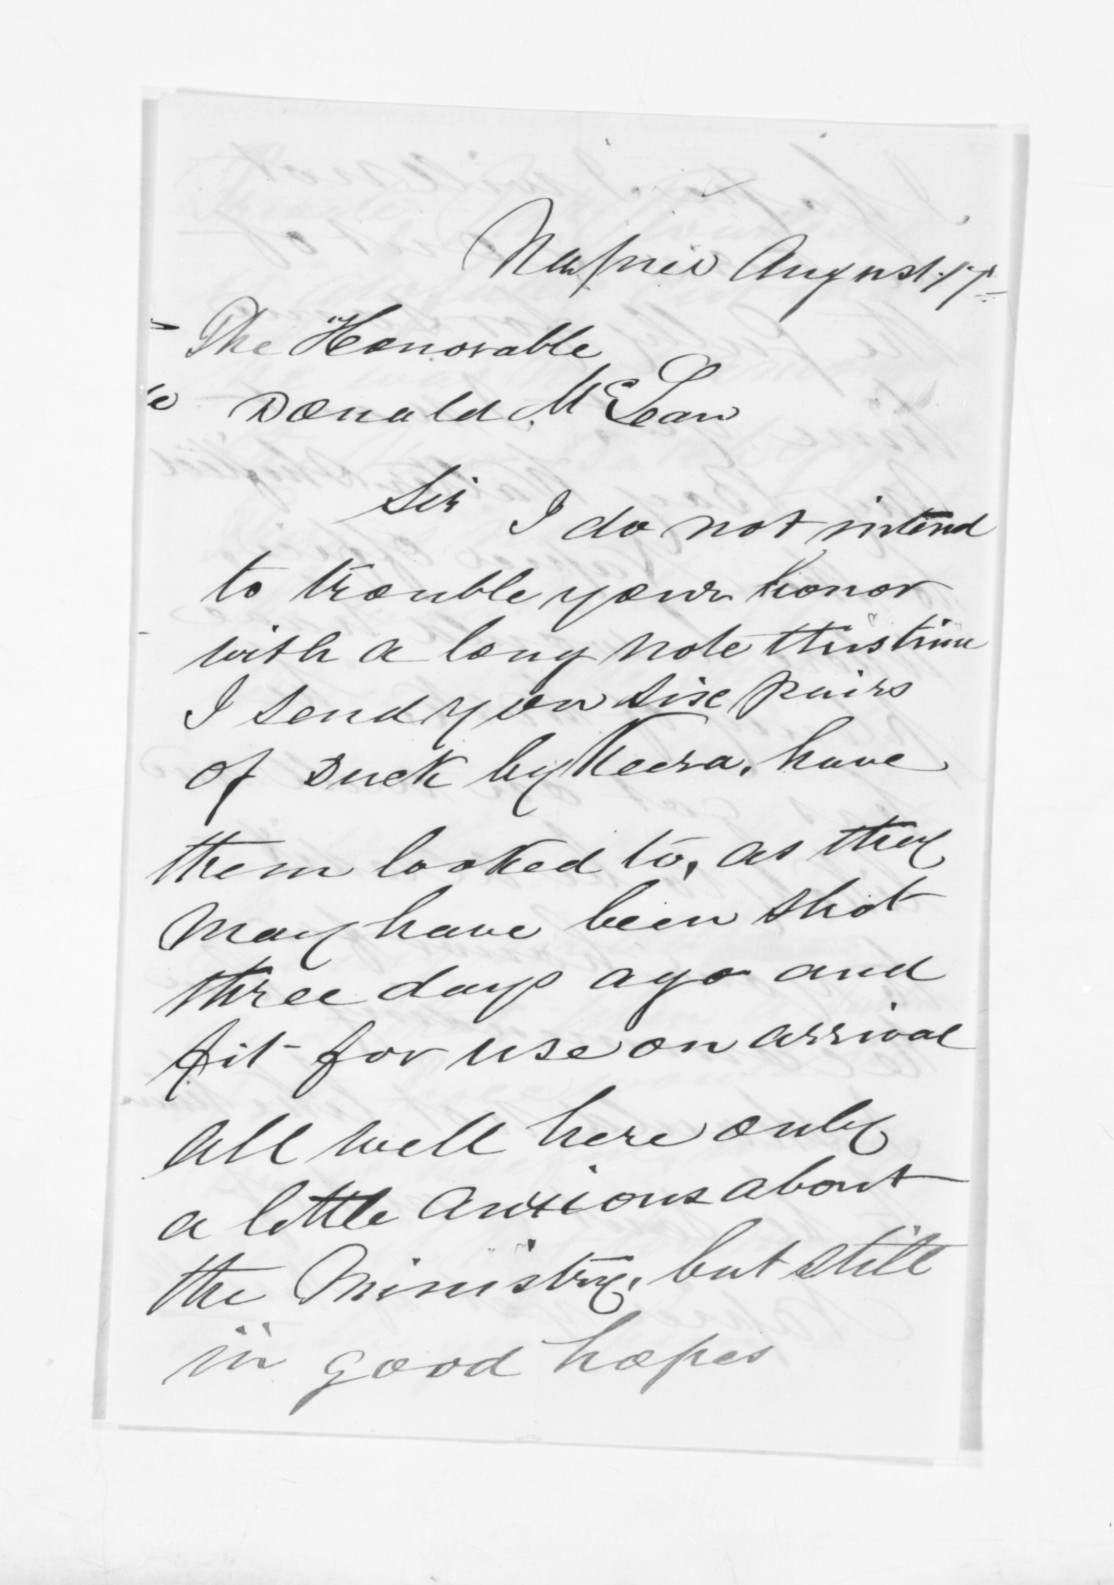 Napier August 17th
The Honorable
Donald McLean
Sir I do not intend
to trouble your honor
with a long note this time
I send you six pairs
of Duck by Keera, have
them looked to, as they
may have been shot
three days ago and
fit for use on arrival
all well here only
a little anxious about
the Ministry, but still
in good hopes